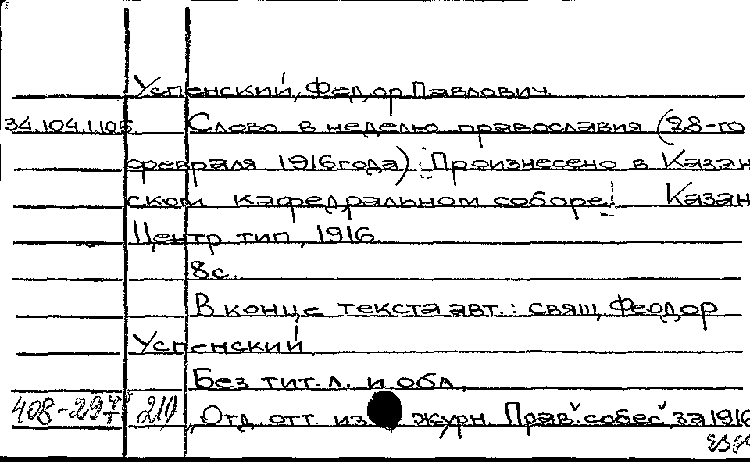 Успенский, Федор Павлович.
34.104.1.105 Слово в неделю православия (28-го
февраля 1916 года). Произнесено в Казан
ском кафедральном соборе. Казан
Центр. тип., 1916.
8с.
В конце текста авт.: свящ. Феодор
Успенский.
Без тит. л. и обл.
210 Отд. отт. из журн. "Прав. собес", за 1916